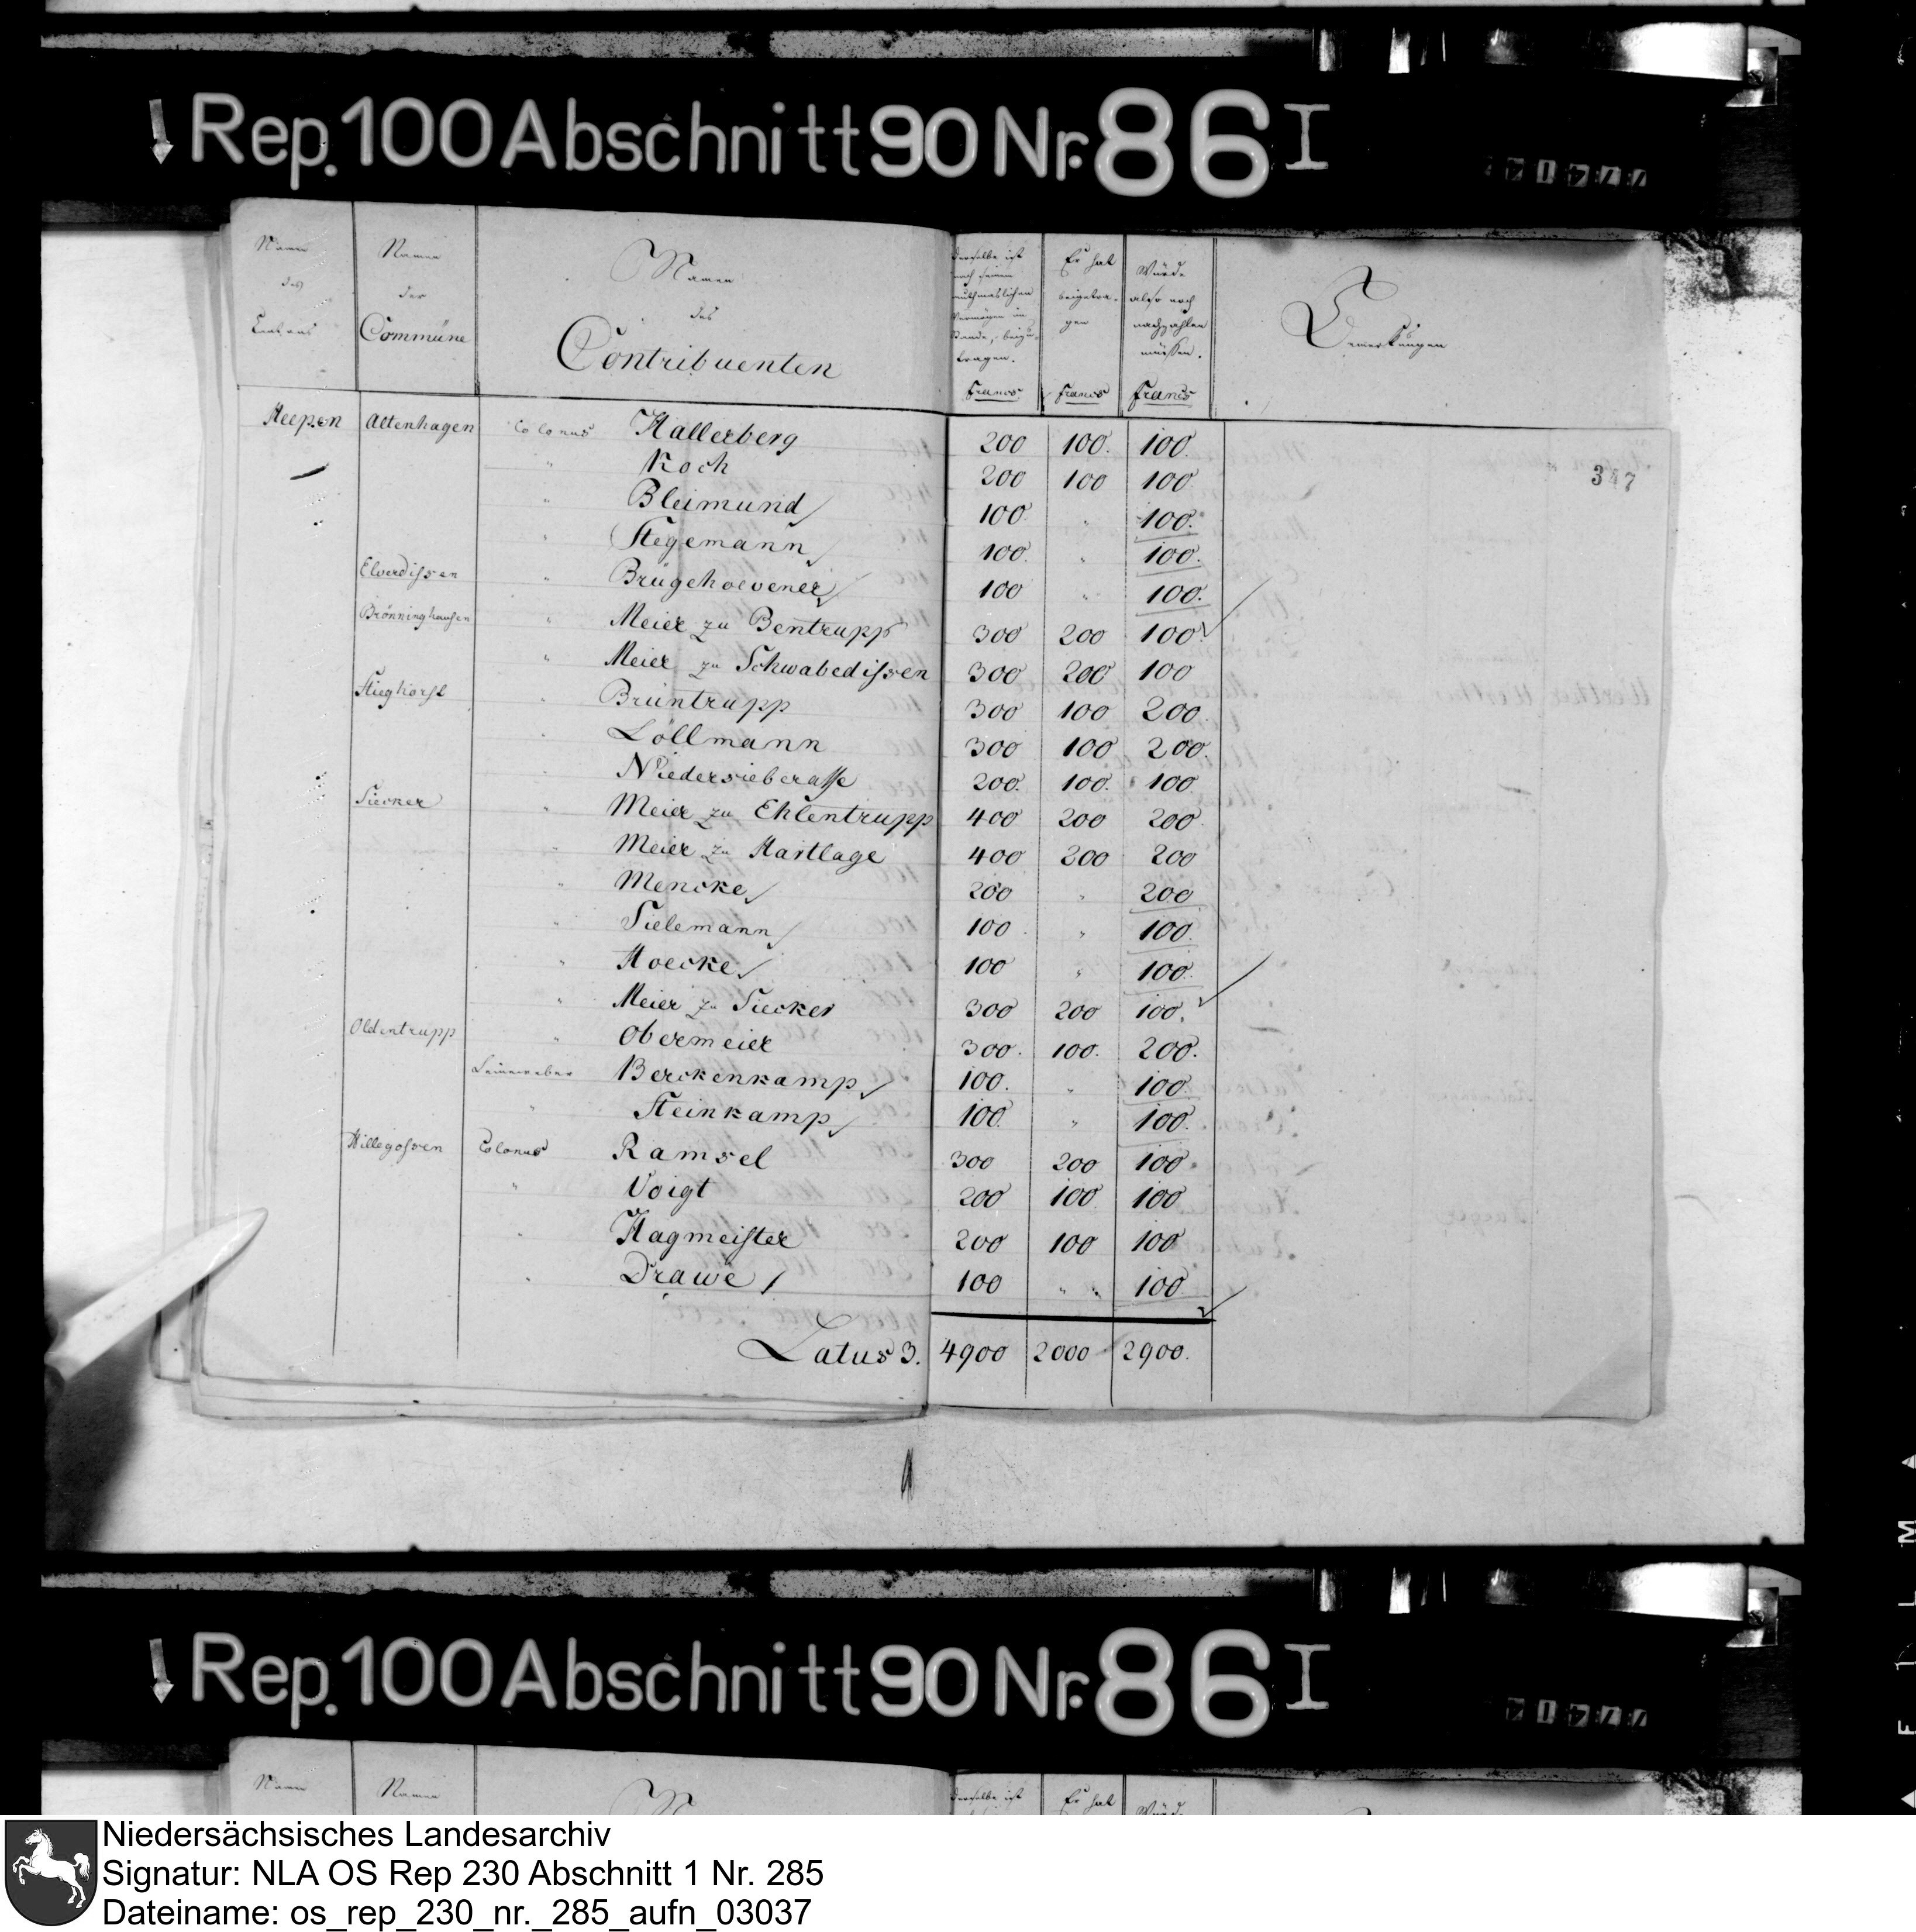 Rep. 100 Abschnitt 90 Nr. 86 I
Namen des Cantons
Namen der Commüne
Namen des Contribuenten
Derselbe ist nach seinem muthmaslichen Vermögen im Stande, beizutragen. Francs
Er hat beigetragen Francs
Würde also noch nachzahlen müssen. Francs
Bemerkungen
347
Heepen Altenhagen Colonus Hallerberg 200 100. 100.
" Koch 200 100 100
" Bleimund 100 " 100.
" Stegemann 100 " 100.
Elverdissen " Brügehoevener 100 " 100.
Brönninghausen " Meier zu Bentrupp 300 200 100
" Meier zu Schwabedissen 300 200 100
Stieghorst " Brüntrupp 300 100 200
" Löllmann 300 100 200.
" Niedersieberasse 200. 100. 100
Siecker " Meier zu Ehlentrupp 400 200 200
" Meier zu Hartlage 400 200 200
" Mencke 200 " 200
" Sielemann 100 " 100.
" Hoecke 100 " 100.
" Meier zu Siecker 300 200 100.
Oldentrupp " Obermeier 300. 100. 200.
Leineweber Berckenkamp 100. " 100.
" Steinkamp 100. " 100.
Hillegossen Colonus Ramsel 300 200 100.
" Voigt 200 100 100
" Hagmeister 200 100 100
" Drawe 100 " 100
Latus 3. 4900 2000 2900.
Rep. 100 Abschnitt 90 Nr. 86 I
Namen
Namen
Derselbe ist
Er hat
Würde
Niedersächsisches Landesarchiv
Signatur: NLA OS Rep 230 Abschnitt 1 Nr. 285
Dateiname: os_rep_230_nr._285_aufn_03037